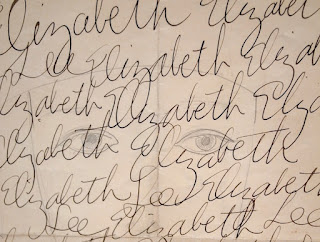 Elizabeth Elizabeth
Lee Elizabeth Elizabeth
Elizabeth Elizabeth
Elizabeth Elizabeth
Elizabeth Lee Elizabeth
Lee Elizabeth Lee